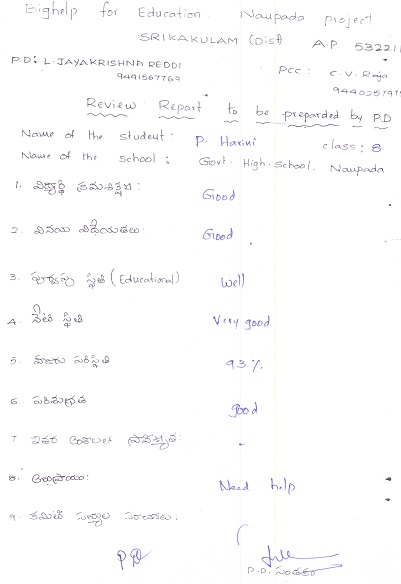 Bighelp for Education. Naupada project
SRIKAKULAM (Dist) A.P 53221
P.D: L. JAYAKRISHNA REDDI PCC: C.V. Raja
9441567769
Review Report to be preparded by P.D
Name of the student: P. Harini class: 8
Name of the school: Govt. High-School. Naupada
1. విద్యార్థి క్రమశిక్షణ: Good
2. వినయ విధేయతలు: Good
3. పూర్వపు స్థితి (Educational) Well
4. నేటి స్థితి Very good
5. హాజరు పరిస్థితి 93%
6. పరిశుభ్రత good
7. ఇతర అంశాలలో ప్రావీణ్యత:
8. అభిప్రాయం: Need help
9. కమిటీ సభ్యుల
PD
P.D. సంతకం